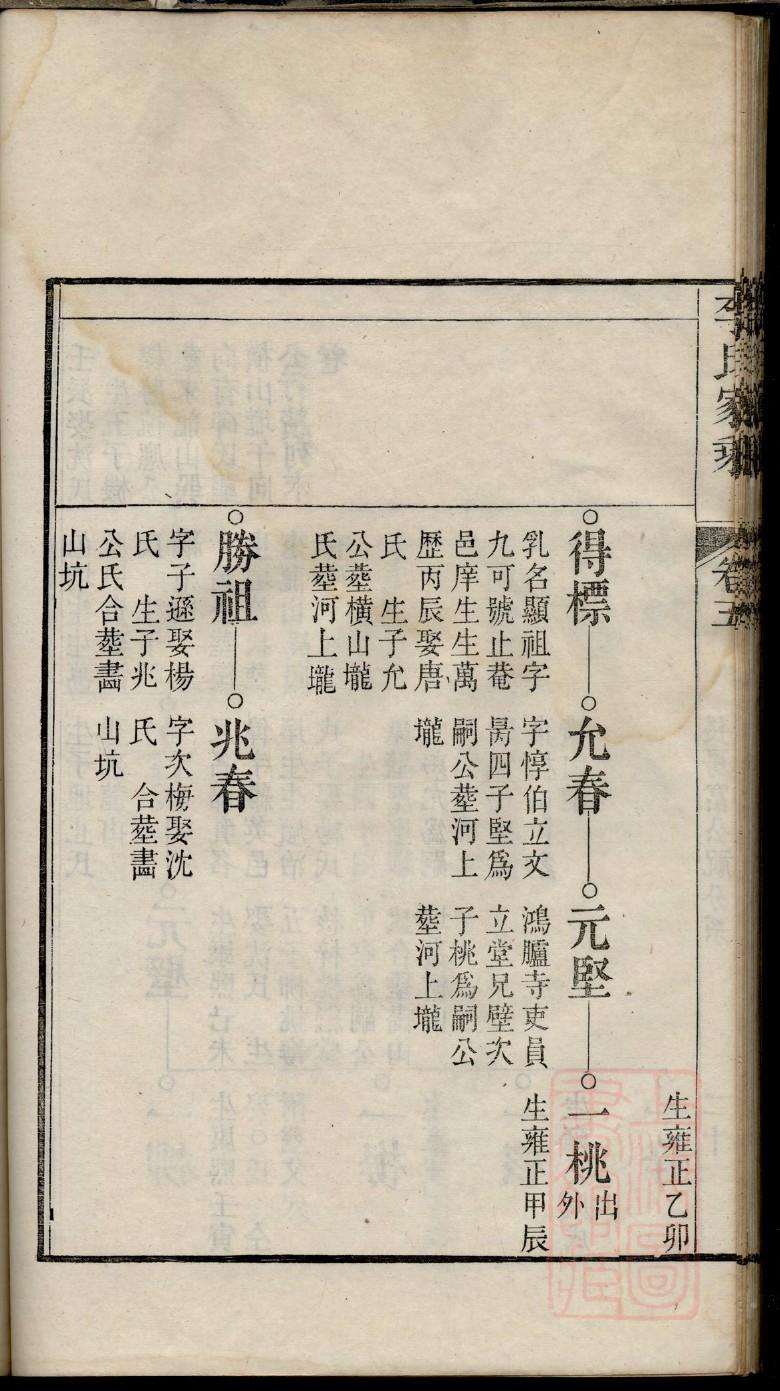 李氏家乘
卷五
生雍正乙卯
得標
允春
元堅
一桃
出外
乳名顯祖字
九可號止菴
邑庠生生萬
歷丙辰娶唐
氏 生子允
公塟橫山壠
氏塟河上壠
字惇伯立文
昺四子堅爲
嗣公塟河上
壠
鴻臚寺吏員
立堂兄壁次
子桃爲嗣公
塟河上壠
生雍正甲辰
勝祖
兆春
字子遜娶楊
氏 生子兆
公氏合塟畵
山坑
字次梅娶沈
氏 合塟畵
山坑